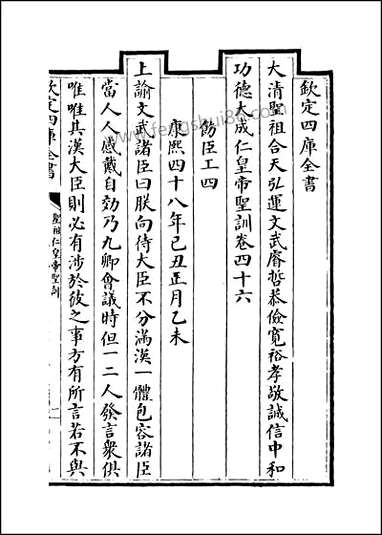 欽定四庫全書
大清聖祖合天弘運文武睿哲恭儉寛裕孝敬誠信中和
功德大成仁皇帝聖訓卷四十六
飭臣工四
康熙四十八年己丑正月乙未
上諭文武諸臣曰朕向待大臣不分滿漢一體包容諸臣
當人人感戴自効乃九卿會議時但一二人發言衆俱
唯唯其漢大臣則必有涉於彼之事方有所言若不與
欽定四庫全書
聖祖仁皇帝聖訓
一
www.fengshui86.com